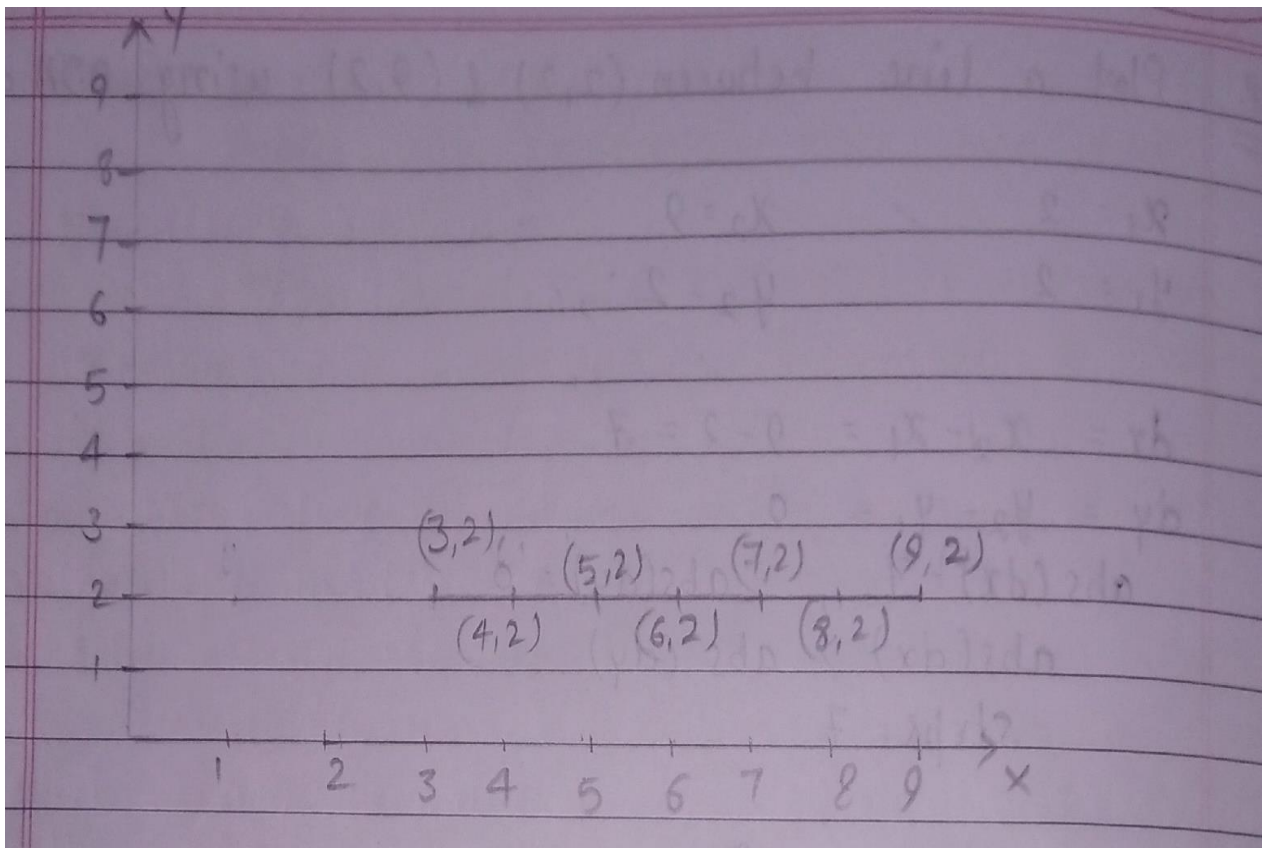 Y
9
8
7
6
5
4
3
(3,2)
(5,2) (7,2) (9,2)
2
(4,2) (6,2) (8,2)
1
1 2 3 4 5 6 7 8 9 X